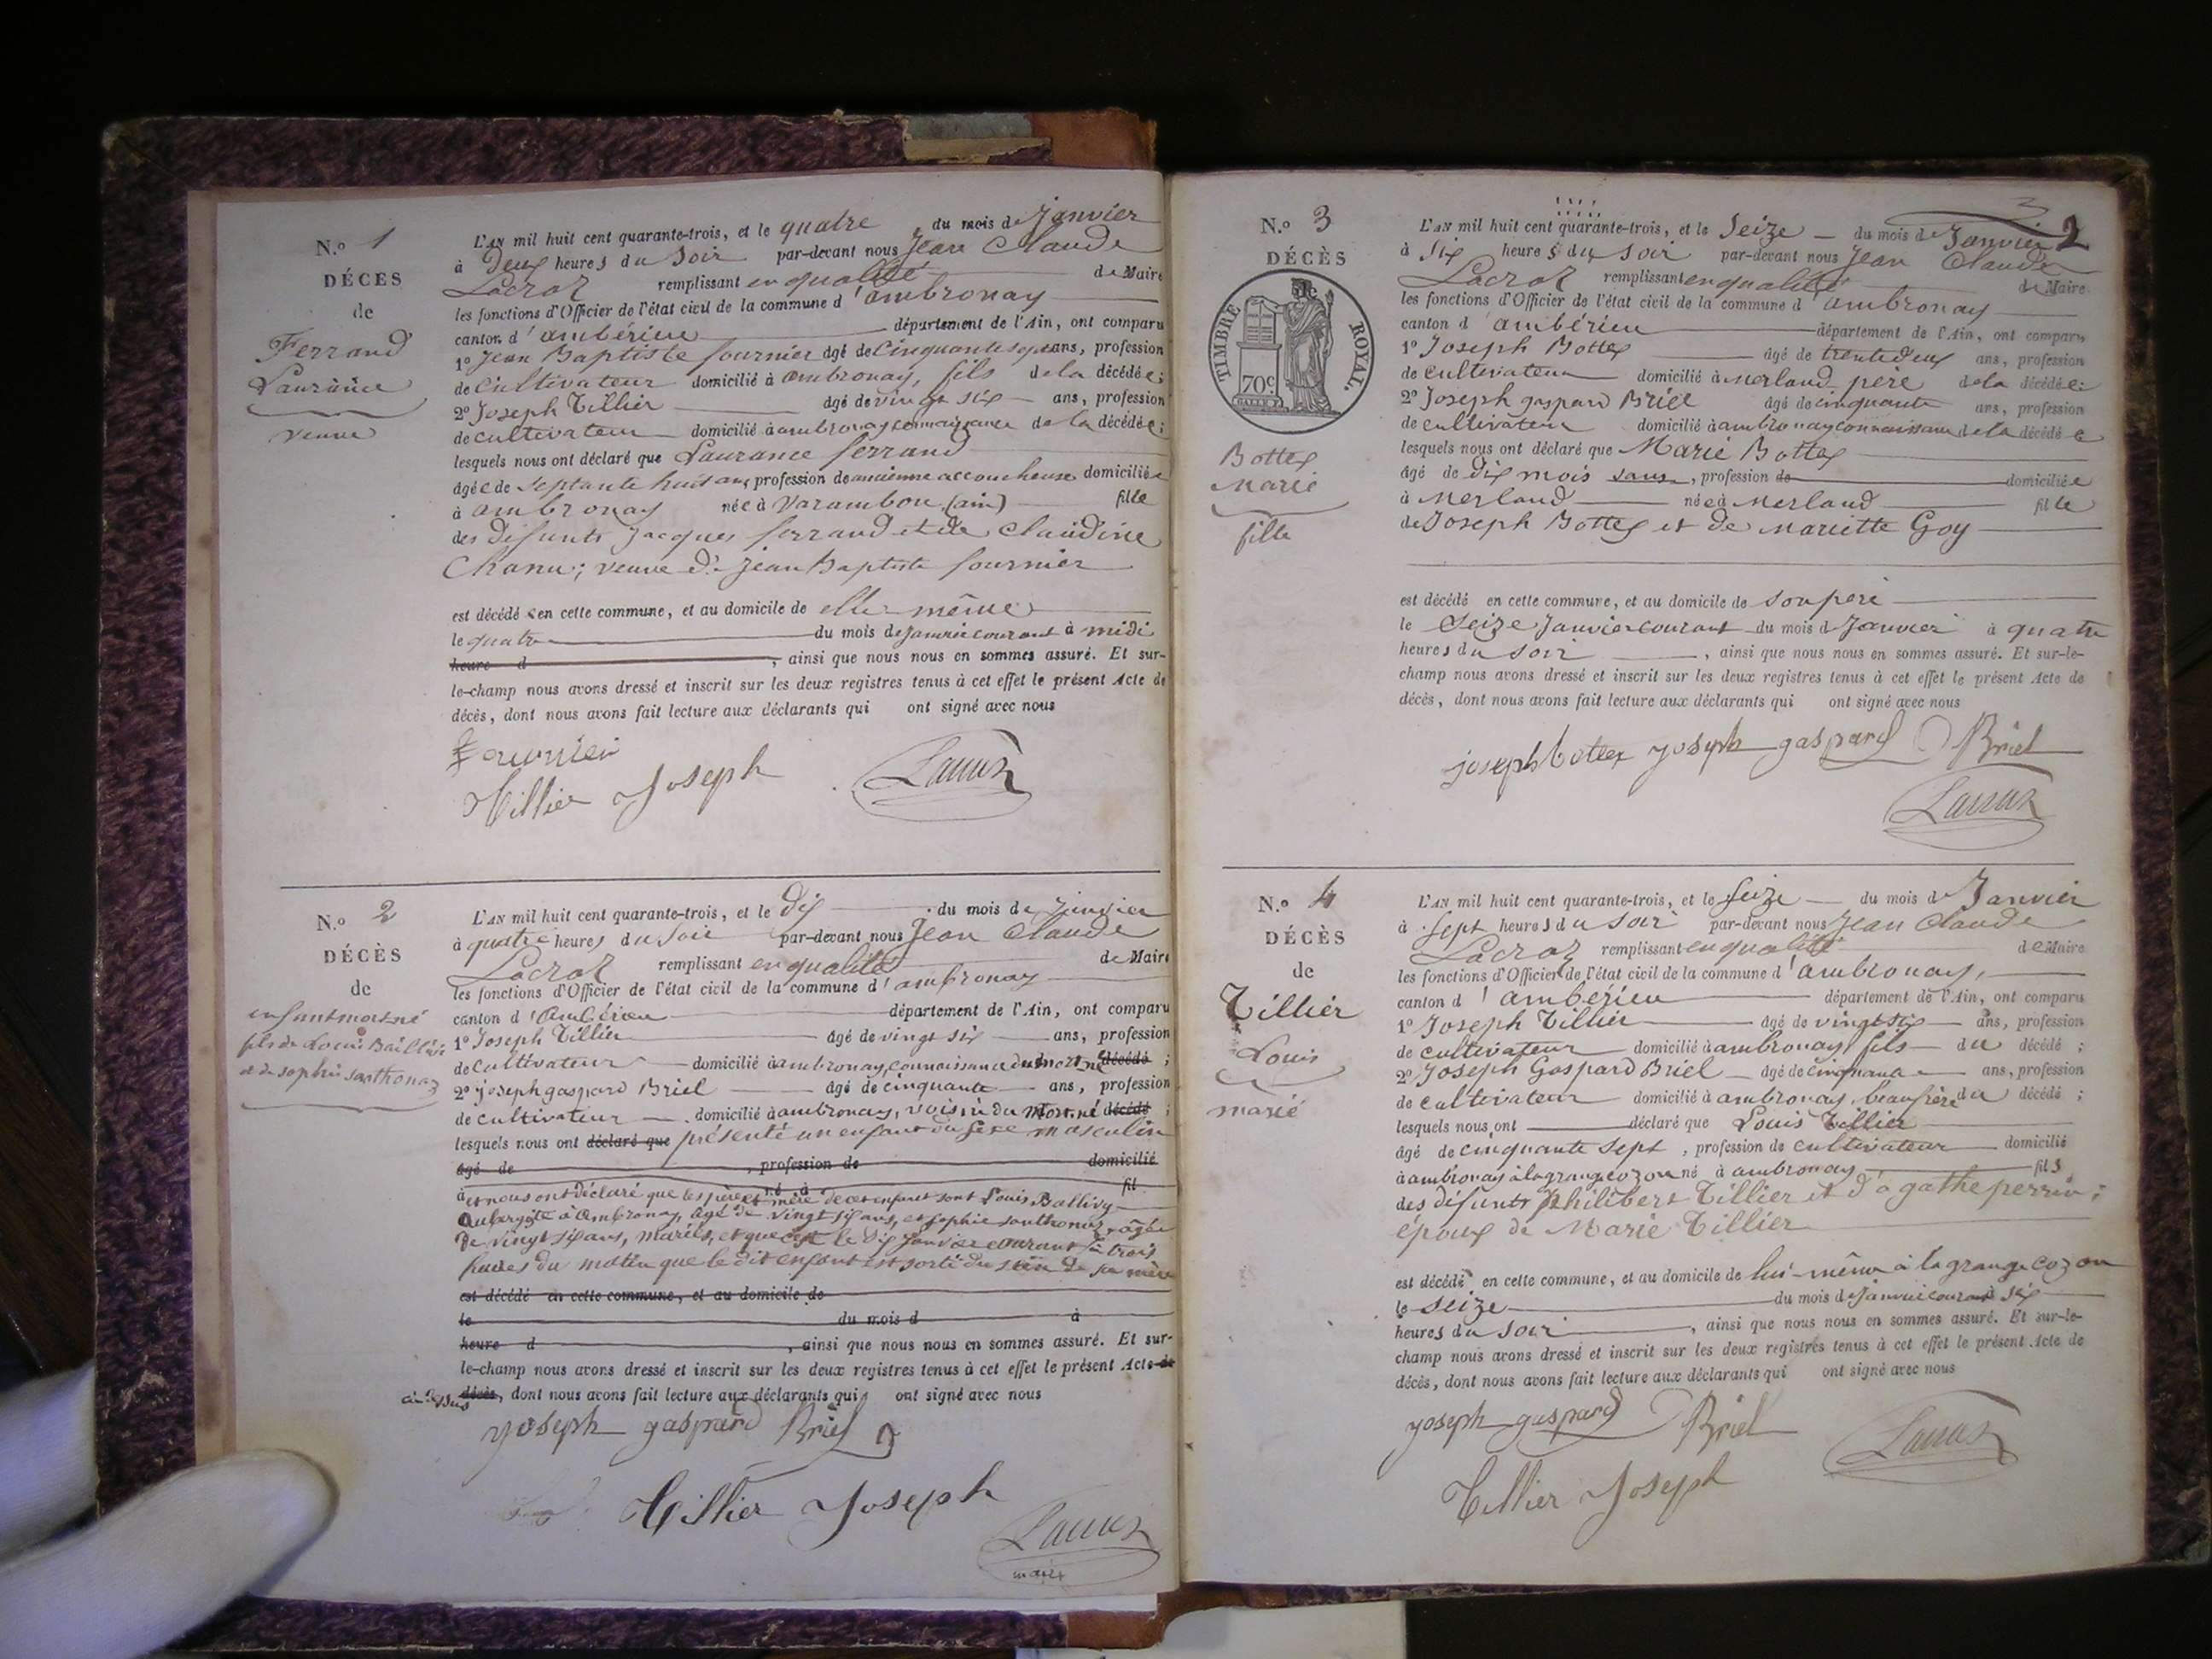 N.º 1
DÉCES
de
Ferrand
Laurance
veuve
L'AN mil huit cent quarante-trois, et le quatre du mois de Janvier
à Deux heures du Soir par-devant nous Jean Claude
Lacroz remplissant en qualité de Maire
les fonctions d'Officier de l'état civil de la commune d'ambronay
canton d'ambérieu département de l'Ain, ont comparu
1º Jean Baptiste fournier âgé de Cinquante sept ans, profession
de Cultivateur domicilié à ambronay, fils de la décédée;
2º Joseph Tillier âgé de vingt six ans, profession
de cultivateur domicilié à ambronay connaissance de la décédée;
lesquels nous ont déclaré que Laurance ferrand
âgée de septante huit ans profession de ancienne accoucheuse domiciliée
à ambronay née à Varambon (ain) fille
des défunts Jacques ferrand et de Claudine
Chanu; veuve de Jean Baptiste fournier
est décédée en cette commune, et au domicile de elle même
le quatre du mois de Janvier courant à midi
heure d , ainsi que nous nous en sommes assuré. Et sur-
le-champ nous avons dressé et inscrit sur les deux registres tenus à cet effet le présent Acte de
décès, dont nous avons fait lecture aux déclarants qui ont signé avec nous
fournier
Tillier Joseph Lacroz
N.º 2
DÉCÈS
de
enfant mort né
fils de Louis Baillivy
et de sophie santhonaz
L'AN mil huit cent quarante-trois, et le Dix du mois de Janvier
à quatre heures du Soir par-devant nous Jean Claude
Lacroz remplissant en qualité de Maire
les fonctions d'Officier de l'état civil de la commune d'ambronay
canton d'Ambérieu département de l'Ain, ont comparu
1º Joseph Tillier âgé de vingt six ans, profession
de cultivateur domicilié à ambronay, connaissance du mort né décédé ;
2º joseph gaspard Briel âgé de cinquante ans, profession
de cultivateur domicilié à ambronay, voisin du mort né décédé ;
lesquels nous ont déclaré que présenté un enfant du sexe masculin
âgé de , profession de domicilié
à né à fil
et nous ont déclaré que les père et mère de cet enfant sont Louis Ballivy
aubergiste à Ambronay, âgé de vingt six ans, et sophie santhonaz, âgée
de vingt six ans, mariés, et que c'est le dix janvier courant à trois
heures du matin que le dit enfant est sorti du sein de sa mère
est décédé en cette commune, et au domicile de
le du mois d à
heure d , ainsi que nous nous en sommes assuré. Et sur-
le-champ nous avons dressé et inscrit sur les deux registres tenus à cet effet le présent Acte de
ci-dessus décès, dont nous avons fait lecture aux déclarants qui ont signé avec nous
joseph gaspard Briel
Tillier Joseph
Lacroz
maire
2
N.º 3
DÉCÈS
TIMBRE ROYAL.
70c
Bottex
Marie
fille
L'AN mil huit cent quarante-trois, et le Seize du mois de Janvier
à Six heures du soir par-devant nous Jean Claude
Lacroz remplissant en qualité de Maire
les fonctions d'Officier de l'état civil de la commune d'ambronay
canton d'ambérieu département de l'Ain, ont comparu
1º Joseph Bottex âgé de trente deux ans, profession
de cultivateur domicilié à merland père de la décédée;
2º Joseph gaspard Briel âgé de cinquante ans, profession
de cultivateur domicilié à ambronay connaissance de la décédée
lesquels nous ont déclaré que Marie Bottex
âgé de dix mois sans, profession de domiciliée
à Merland née à Merland fille
de Joseph Bottex et de Mariette Goy
est décédé en cette commune, et au domicile de son père
le Seize Janvier courant du mois d Janvier à quatre
heures du soir , ainsi que nous nous en sommes assuré. Et sur-le-
champ nous avons dressé et inscrit sur les deux registres tenus à cet effet le présent Acte de
décès, dont nous avons fait lecture aux déclarants qui ont signé avec nous
joseph bottex joseph gaspard Briel
Lacroz
N.º 4
DÉCÈS
de
Tillier
Louis
marié
L'AN mil huit cent quarante-trois, et le seize du mois de Janvier
à sept heures du soir par-devant nous Jean Claude
Lacroz remplissant en qualité de Maire
les fonctions d'Officier de l'état civil de la commune d'ambronay,
canton d'ambérieu département de l'Ain, ont comparu
1º Joseph Tillier âgé de vingt six ans, profession
de cultivateur domicilié à ambronay fils du décédé ;
2º Joseph Gaspard Briel âgé de cinquante ans, profession
de cultivateur domicilié à ambronay, beau frère du décédé ;
lesquels nous ont déclaré que Louis Tillier
âgé de cinquante sept, profession de cultivateur domicilié
à ambronay à la grange cozon né à ambronay fils
des défunts Philibert Tillier et d'agathe perrin;
époux de Marie Tillier
est décédé en cette commune, et au domicile de lui-même à la grange cozon
le seize du mois de janvier courant à six
heures du soir , ainsi que nous nous en sommes assuré. Et sur-le-
champ nous avons dressé et inscrit sur les deux registres tenus à cet effet le présent Acte de
décès, dont nous avons fait lecture aux déclarants qui ont signé avec nous
joseph gaspard Briel Lacroz
Tillier Joseph